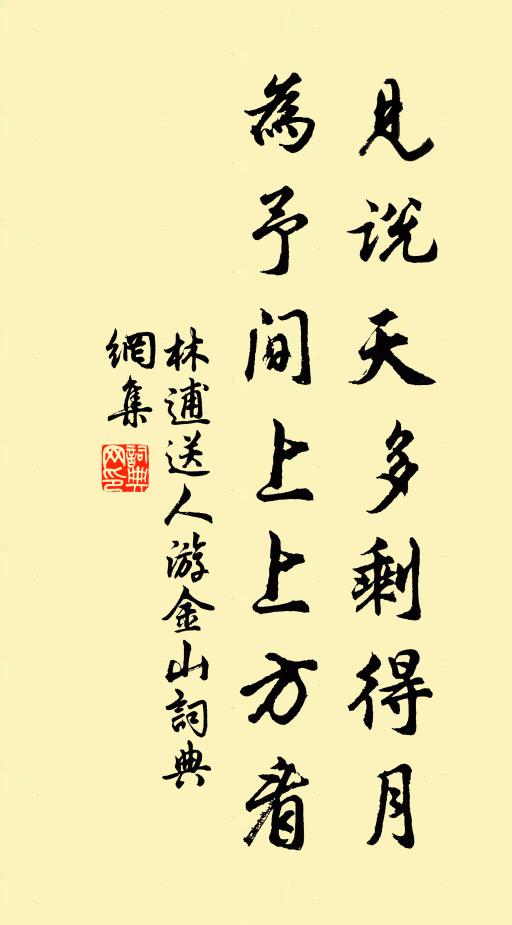 見說天多剩得月
為予閒上上方看
林逋送人游金山詞典
網集
詞典
网印